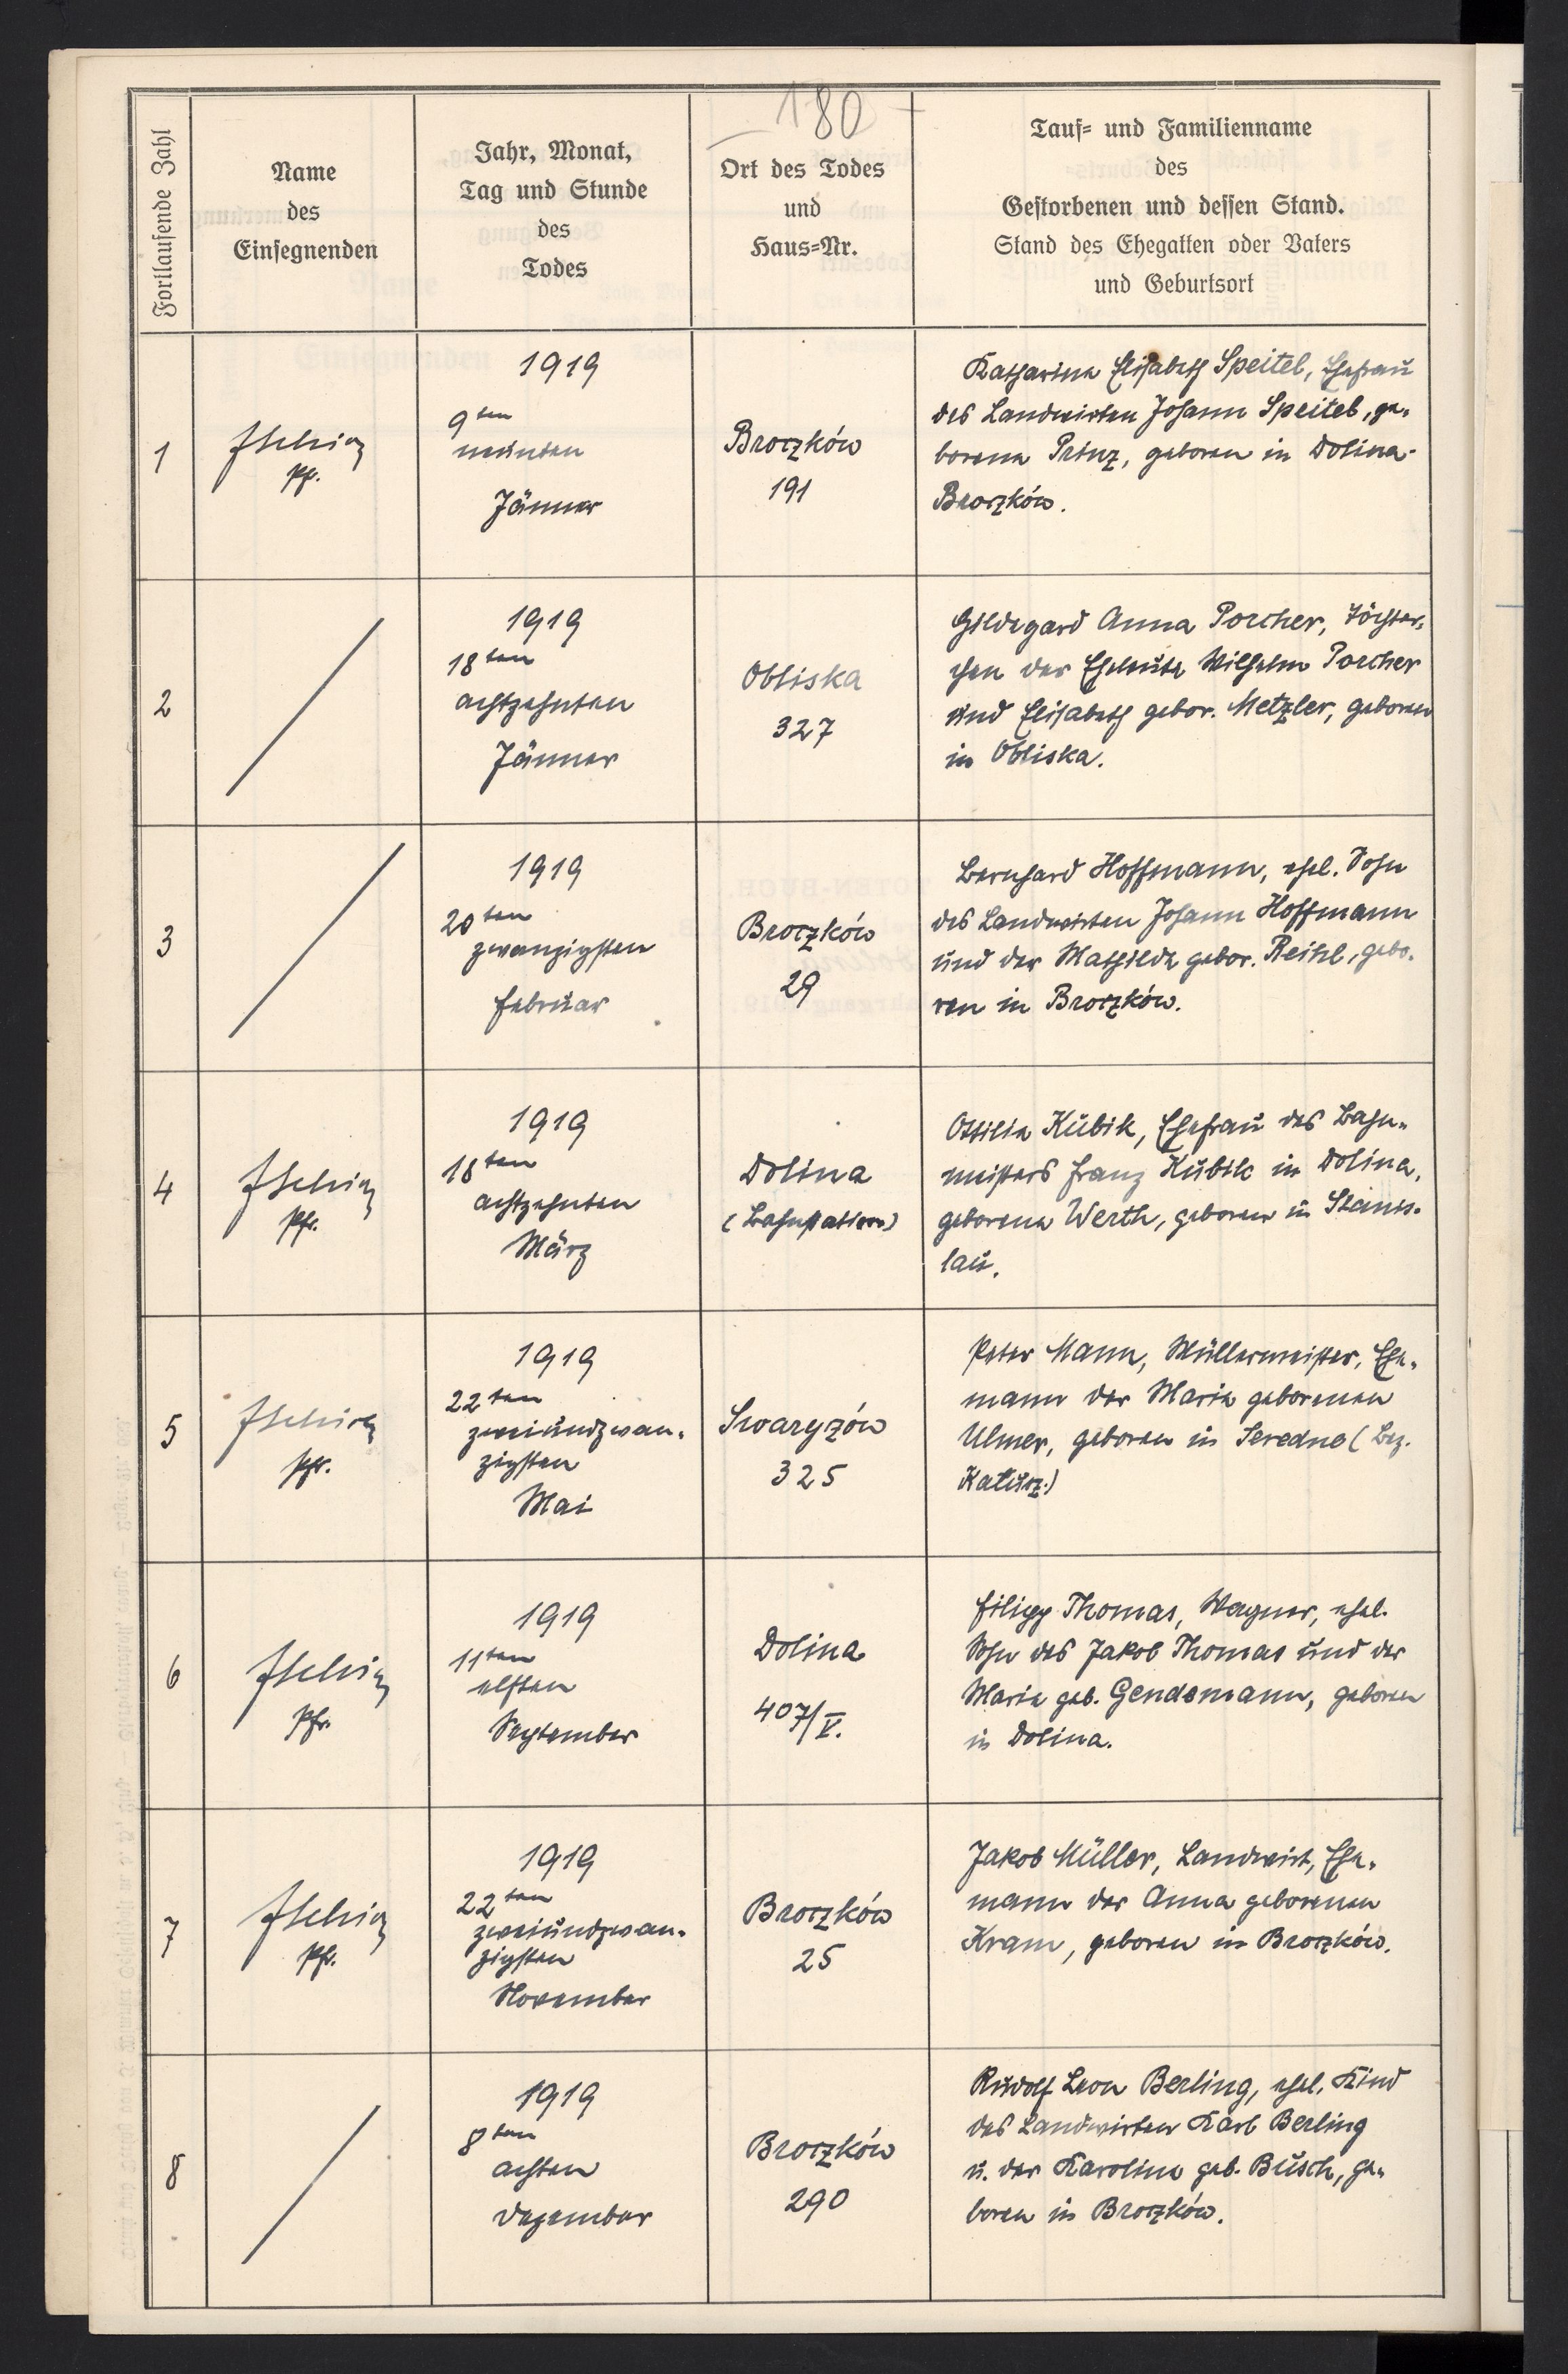 180
Fortlaufende Zahl
Name
des
Einsegnenden
Jahr, Monat,
Tag und Stunde
des
Todes
Ort des Todes
und
Haus=Nr.
Tauf= und Familienname
des
Gestorbenen und dessen Stand.
Stand des Ehegatten oder Vaters
und Geburtsort
1
Pfr.
1919
9ten
neunten
Jänner
Broczków
191
Katharina Elisabeth Speitel, Ehefrau
des Landwirten Johann Speitel, ge-
borene Prinz, geboren in Dolina-
Broczków.
2
1919
18ten
achtzehnten
Jänner
Obliska
327
Hildegard Anna Porcher, Töchter-
chen der Eheleute Wilhelm Porcher
und Elisabeth gebor. Metzler, geboren
in Obliska.
3
1919
20ten
zwanzigsten
Februar
Broczków
29
Bernhard Hoffmann, ehel. Sohn
des Landwirten Johann Hoffmann
und der Mathilde gebor. Reihl, gebo-
ren in Broczków.
4
Pfr.
1919
18ten
achtzehnten
März
Dolina
(Bahnstation)
Ottilie Kubik, Ehefrau des Bahn-
meisters Franz Kubik in Dolina,
geborene Werth, geboren in Stanis-
lau.
5
Pfr.
1919
22ten
zweiundzwan-
zigsten
Mai
Swaryzów
325
Peter Mann, Müllermeister, Ehe-
mann der Maria geborenen
Ulmer, geboren in Seredne (Bez.
Kalusz.)
6
Pfr.
1919
11ten
elften
September
Dolina
407/V.
Filipp Thomas, Wagner, ehel.
Sohn des Jakob Thomas und der
Maria geb. Gendsmann, geboren
in Dolina.
7
Pfr.
1919
22ten
zweiundzwan-
zigsten
November
Broczków
25
Jakob Müller, Landwirt, Ehe-
mann der Anna geborenen
Kram, geboren in Broczków.
8
1919
8ten
achten
Dezember
Broczków
290
Rudolf Leon Berling, ehel. Kind
des Landwirten Karl Berling
u. der Karoline geb. Busch, ge-
boren in Broczków.